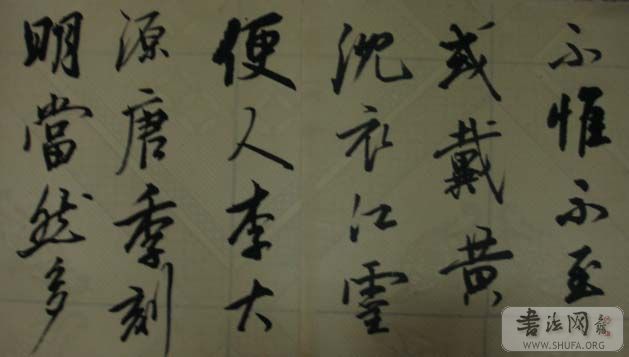 不惟不至
或戴黄
沈衣江靈
便人李大
源唐季刻
明當然多
書法网
WWW.SHUFA.ORG